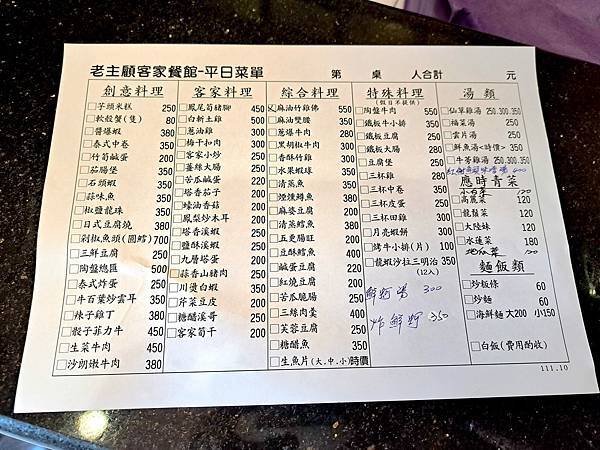 老主顧客家餐館-平日菜單 第 桌 人合計 元
創意料理
芋頭米糕 250
軟殼蟹(隻) 80
醬爆蝦 380
泰式中卷 350
竹筍鹹蛋 220
茄腸堡 350
石頭蝦 350
蒜味魚 350
椒鹽龍珠 350
日式豆腐燒 380
剁椒魚頭(圓鱈) 700
三鮮豆腐 250
陶盤臭豆腐 500
泰式炸蛋 250
牛百葉炒雲耳 350
辣子雞丁 380
骰子菲力牛 450
生菜牛肉 450
沙朗嫩牛肉 380
客家料理
鳳尾筍豬腳 450
白斬土雞 500
蔥油雞 300
梅干扣肉 300
客家小炒 250
薑絲大腸 250
苦瓜鹹蛋 220
塔香茄子 200
蠔油香菇 200
鳳梨炒木耳 200
塔香溪蝦 250
鹽酥溪蝦 250
九層塔蛋 200
蒜香山豬肉 250
川燙白蝦 350
芹菜豆皮 200
糖醋溪哥 250
客家筍干 200
綜合料理
麻油竹雞佛 550
麻油雙腰 350
蔥爆牛肉 280
黑胡椒牛肉 300
香酥竹雞 300
水果蝦球 350
清蒸魚 350
煙燻鱘魚 380
麻婆豆腐 200
清蒸鱈魚 380
五更腸旺 200
豆酥鱈魚 400
鹹蛋豆腐 220
紅燒豆腐 200
苦瓜脆腸 250
三絲肉羹 400
芙蓉豆腐 250
糖醋魚 350
生魚片(大.中.小)時價
特殊料理
(假日不提供)
陶盤牛肉 550
鐵板牛小排 350
鐵板豆腐 280
鐵板大腸 280
豆腐煲 250
三杯雞 280
三杯中卷 350
三杯皮蛋 250
三杯田雞 300
月亮蝦餅 300
烤牛小排(片) 100
龍蝦沙拉三明治 350
(12人)
鮮蚵湯 300
炸鮮蚵 350
湯類
仙草雞湯 250.300.350
福菜湯 250
雲片湯 250
鮮魚湯<時價> 350
牛蒡雞湯 250.300.350
應時青菜
高麗菜 120
龍鬚菜 120
大陸妹 120
水蓮菜 180
地瓜菜 120
麵飯類
炒粄條 60
炒麵 60
海鮮麵 大200 小150
白飯(費用酌收)
111.10